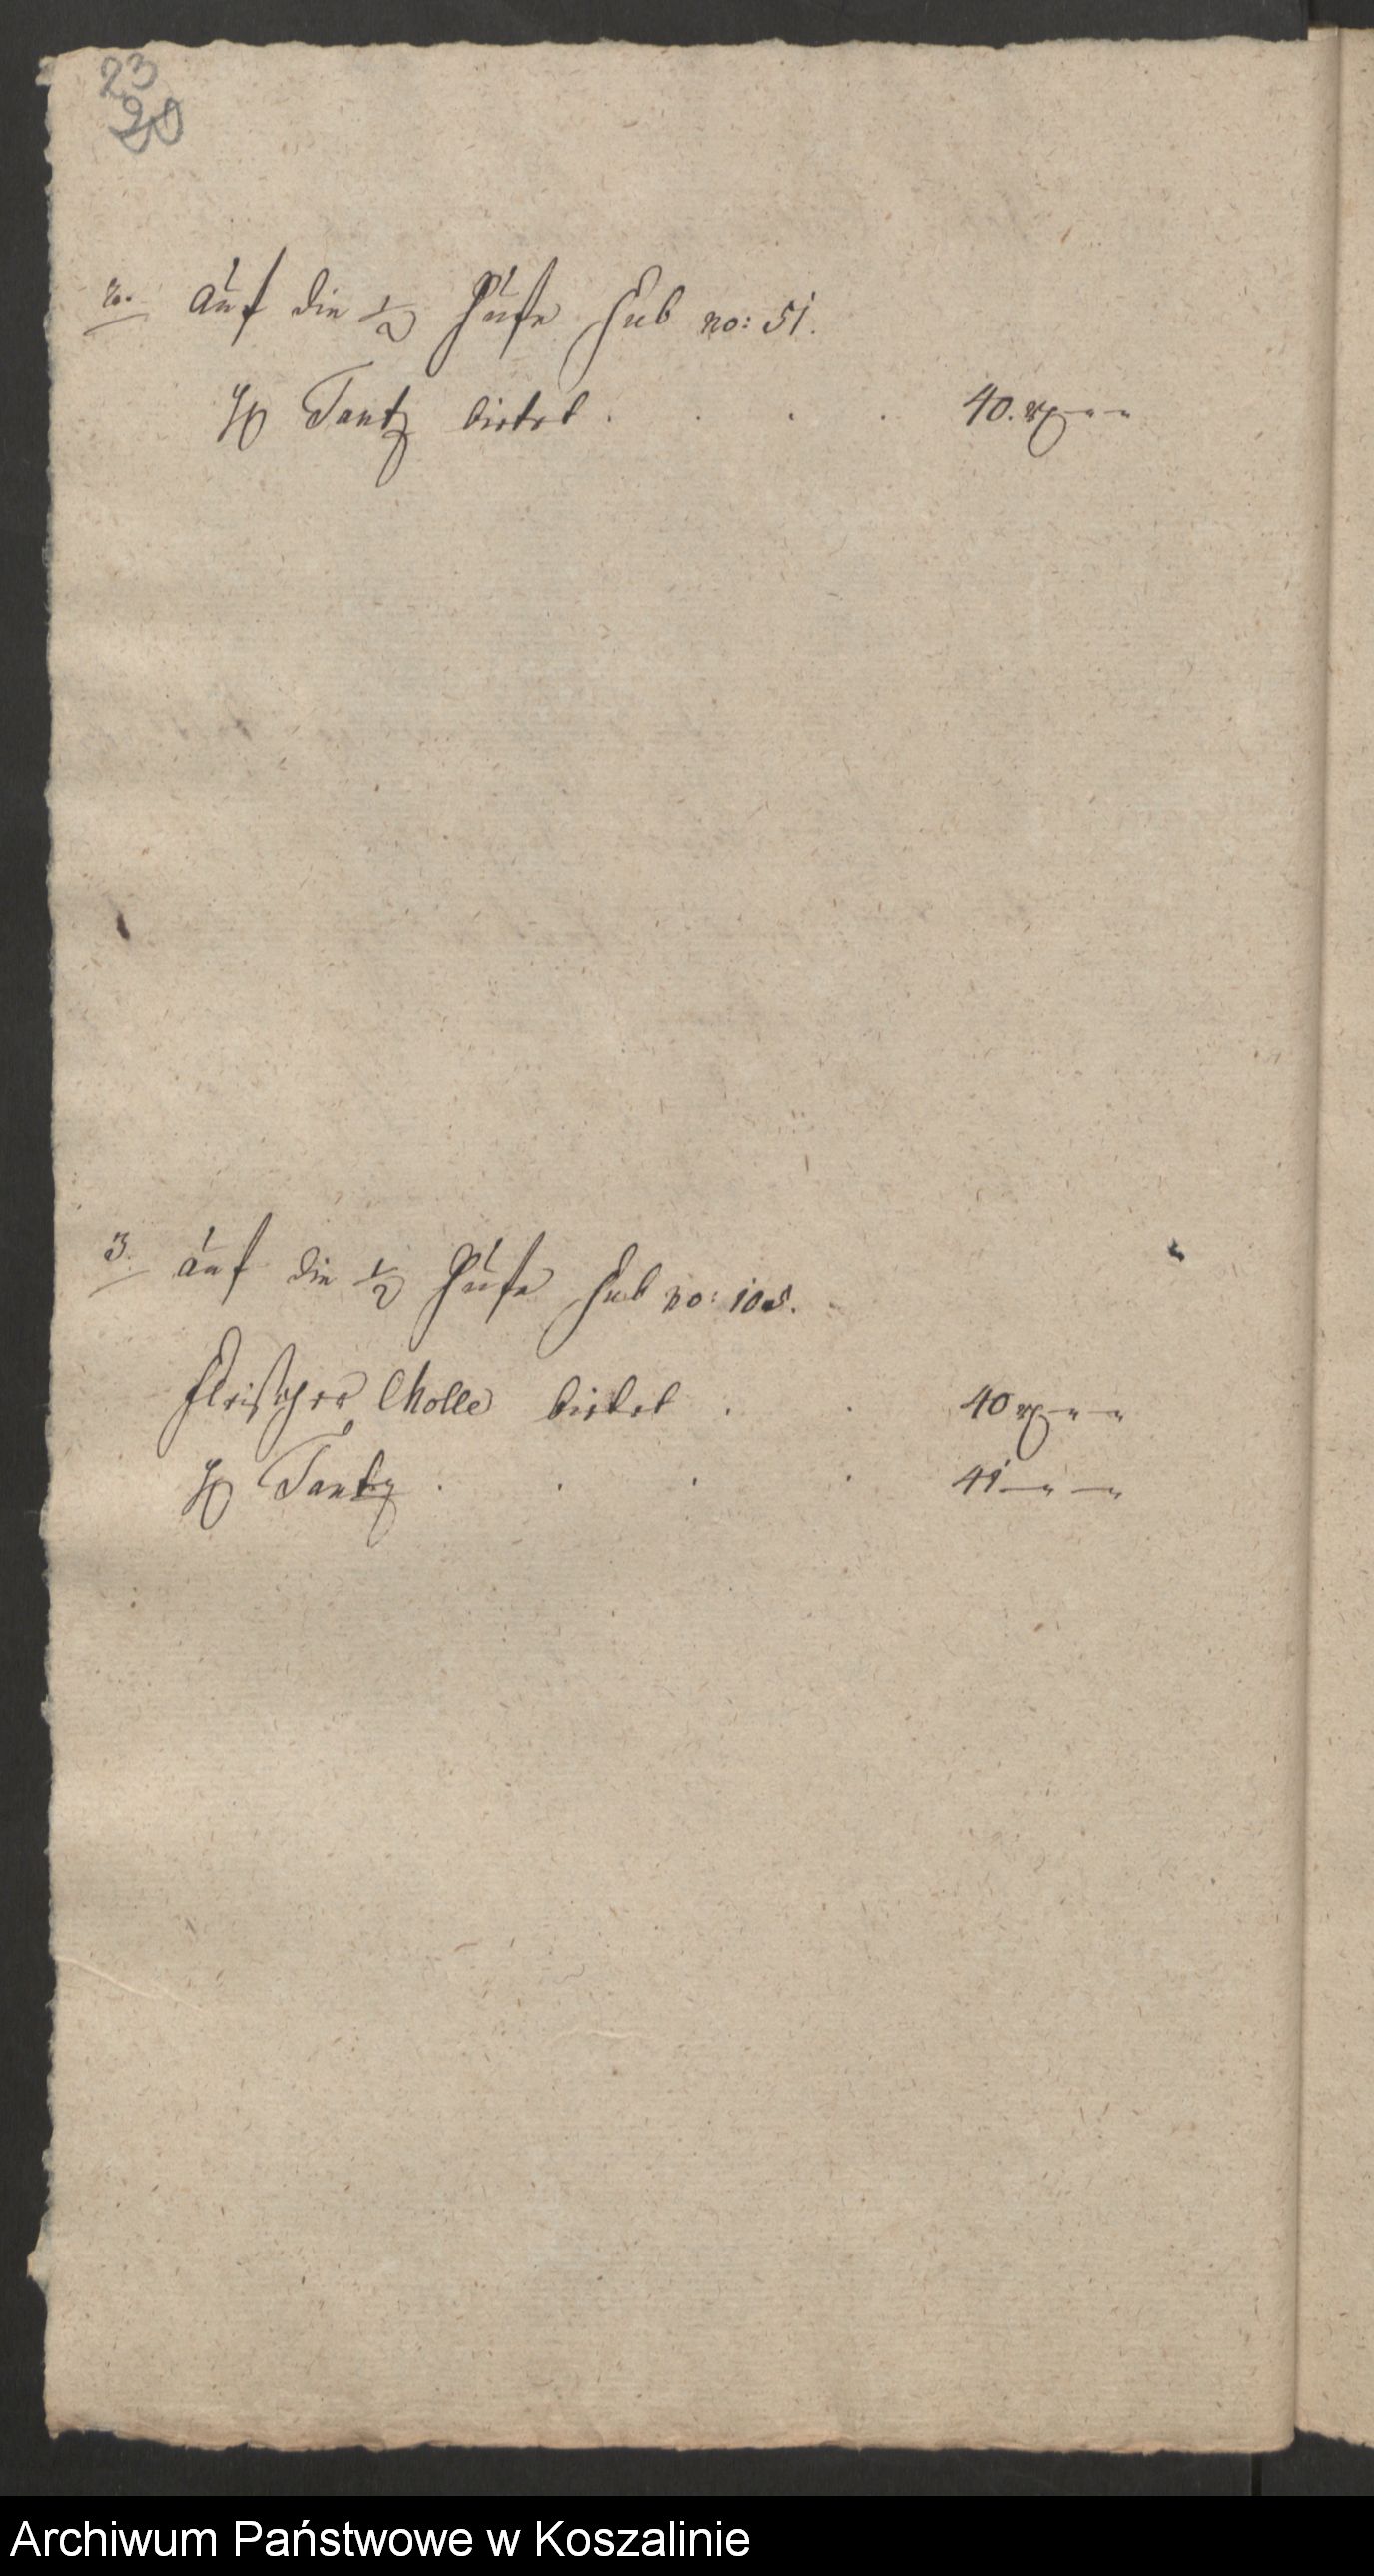 23
20
2. auf die 1/2 Hufe sub no: 51.
H Tantz bietet . . . . 40. rt - -
3. auf die 1/2 Hufe sub no: 105.
Fleischer Molle bietet . . 40 rt - -
H Tantz . . . . 41 - -
Archiwum Państwowe w Koszalinie